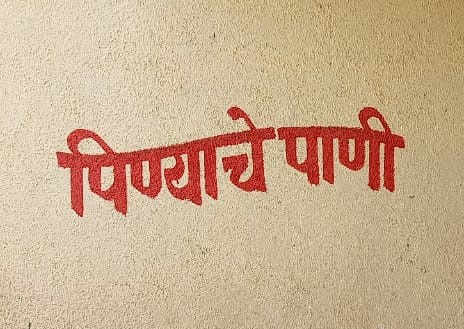 पिण्याचे पाणी